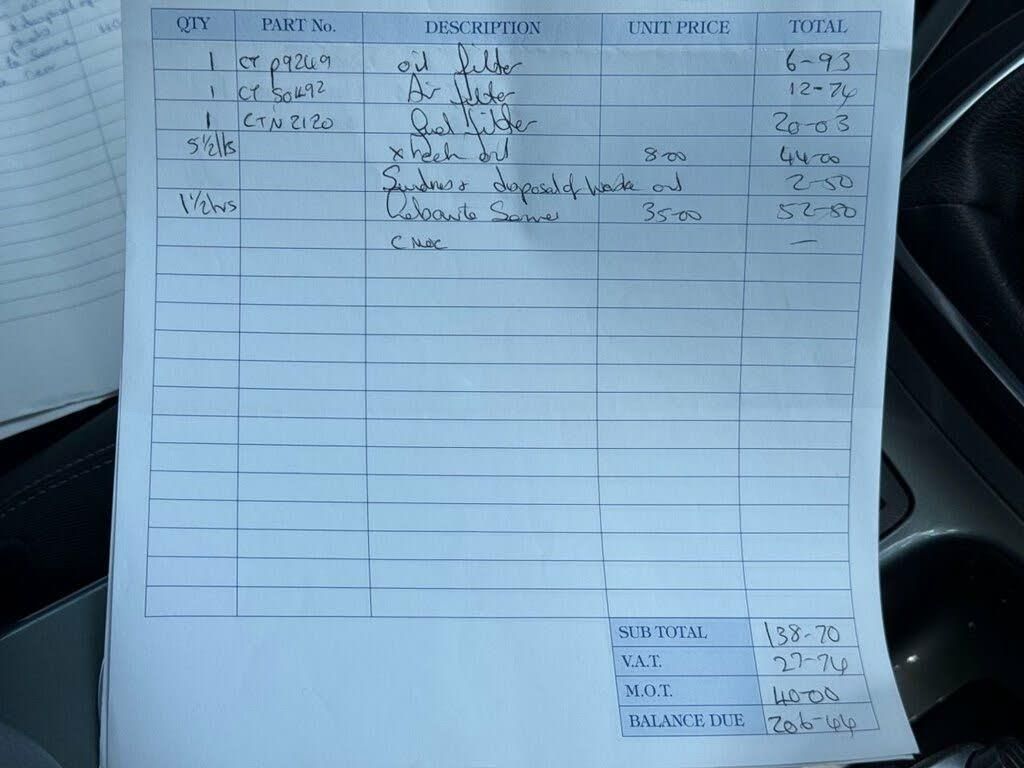 QTY PART No. DESCRIPTION UNIT PRICE TOTAL
1 CT P9249 oil filter 6-93
1 CT 50492 Air filter 12-74
1 CTN 2120 fuel filter 20-03
5 1/2 lts oil 8-00 44-00
Sundries + disposal of waste oil 2-50
1 1/2 hrs Labour to 35-00 52-50
—
SUB TOTAL 138-70
V.A.T. 27-74
M.O.T. 40-00
BALANCE DUE 206-44